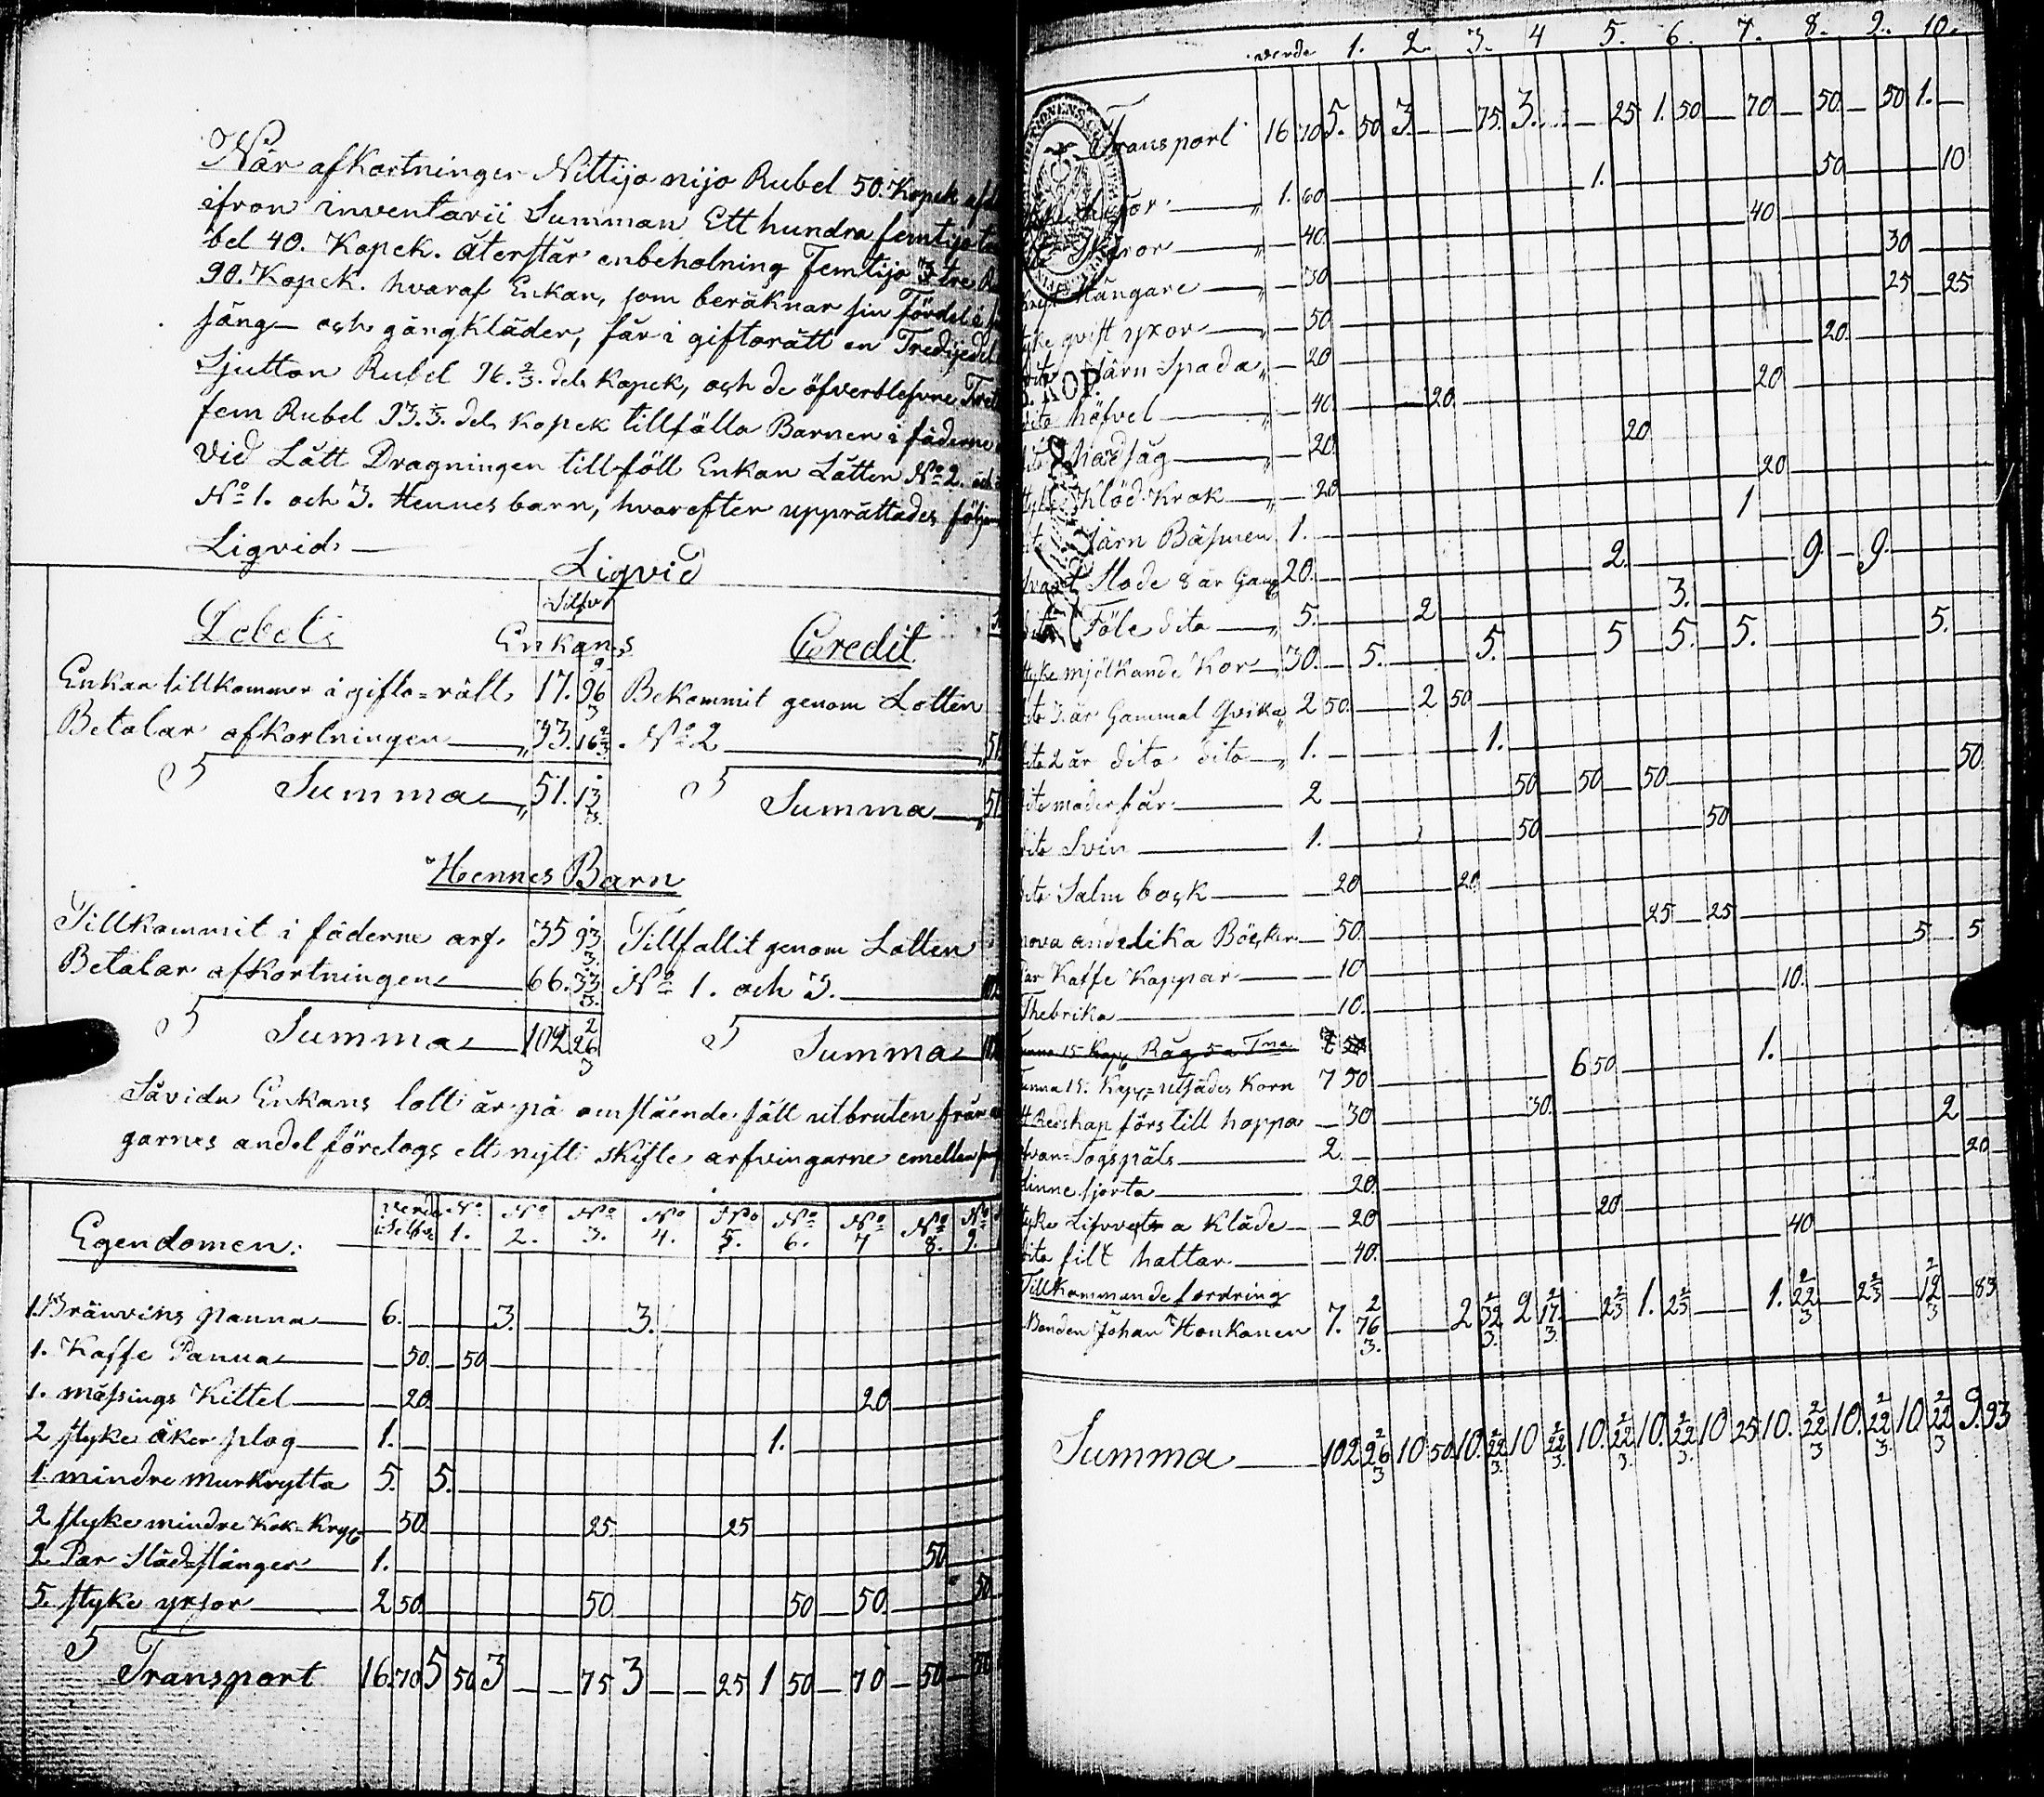 När afkortninger Nittijo nijo Rubel 50. Kopek
ifron inventarii Summan Ett hundra femtijo
bel 40. Kopek. återstår enbeholning Femtijo tre
90. Kopek. hvaraf Enkan, som beräknar sin Fördel i
säng- och gångkläder, får i giftorätt en Tredjedel
Sjutton Rubel 96. 2/3. dels Kopek, och de öfverblefvne
fem Rubel 93. 1/3. dels Kopek tillfälla Barnen i fäderne
Vid Lått Dragningen tillföll Enkan Låtten No 2. och
No 1. och 3. Hennes barn, hvarefter upprättades
Liqvid
Liqvid
Silfvr
Debet Enkans Credit
Enkan tillkommer i gifto=rätt 17. 96 2/3 Bekommit genom Lotten
Betalar afkortningen 33. 16 2/3. No 2 51
Summa 51. 13 1/3. Summa 51
Hennes Barn
Tillkommit i fäderne arf. 35 93 1/3. Tillfallit genom Lotten
Betalar afkortningen 66. 33 1/3. No 1. och 3.
Summa 102 26 2/3 Summa
Såvida Enkans lott är på omstående sätt utbruten från
garnes andel företogs ett nytt skifte arfvingarne emellan
Egendomen: Verde i Silfver No 1. No 2. No 3. No 4. No 5. No 6. No 7 No 8. No 9.
1. Bränvins panna 6. 3. 3.
1. Kaffe Panna 50. 50
1. mässings Kittel 20. 20
2 styke åker plog 1. 1.
1. mindre murkrytta 5. 5.
2 styke mindre Kok=Kryt 50. 25 25
2 Par Släd=stänger 1. 50
5. styke yxsor 2 50. 50. 50 50. 50
Transport 16. 70 5 50 3 75 3 25 1 50 70 50 50
verde 1. 2. 3. 4 5. 6. 7. 8. 9. 10.
Transport 16 70 5. 50 3. 75. 3. 25 1. 50 70 50. 50 1.
1. 60 1. 50 10
40. 40
Hängare 30 30
qvist yxor 50. 25 25
Järn Spada 20 20.
dito höfvel 40. 20. 20
handsåg 20. 20
Klöd Krok 20 20
järn Bäsmen 1. 1
Stode 8 år Gam 20. 2. 9 9.
Föle dito 5. 2 3.
mjölkande Kor 30. 5. 5. 5 5. 5. 5.
3. år Gammal Qvika 2 50. 2 50
2 år dito dito 1. 1.
moderfår 2 50 50 50. 50
Svin 1. 50 50
Salm bok 20 20
andelika Böcker 50. 25 25
Par Kaffe Koppar 10 5 5
Thebrika 10. 10.
15 Kapp Råg 5 a Tna 7 50
15. Kapp= utsädes Korn 7 50 6 50 1.
Redskap förs till hoppa 30 30.
Togspäls 2. 2
linne sjorta 20. 20
Lifvvets a Kläde 20 20
filt hattar 40. 40
Tillkommande fordring
Bonden Johan Honkanen 7. 76 2/3. 2 32 2/3. 2 17 2/3. 2 2/3 1. 2 2/3 1. 22 2/3 2 2/3 12 2/3 83
Summa 102 26 2/3 10 50. 10. 22 2/3. 10 22 2/3. 10. 22 2/3. 10. 22 2/3. 10 25 10. 22 2/3 10. 22 2/3. 10 22 2/3 9. 93